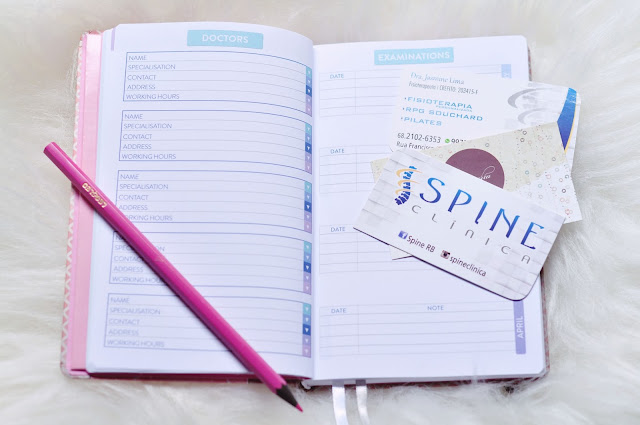 DOCTORS
NAME
SPECIALISATION
CONTACT
ADDRESS
WORKING HOURS
NAME
SPECIALISATION
CONTACT
ADDRESS
WORKING HOURS
NAME
SPECIALISATION
CONTACT
ADDRESS
WORKING HOURS
SPECIALISATION
CONTACT
ADDRESS
WORKING HOURS
NAME
SPECIALISATION
CONTACT
ADDRESS
WORKING HOURS
EXAMINATIONS
DATE
DATE
DATE
DATE
DATE NOTE
APRIL
Dra Jasmine Lima
Fisioterapeuta | CREFITO
•FISIOTERAPIA
•RPG SOUCHARD
•PILATES
68 2102-6353
Rua Francisco
SPINE
clínica
Spine RB spineclinica